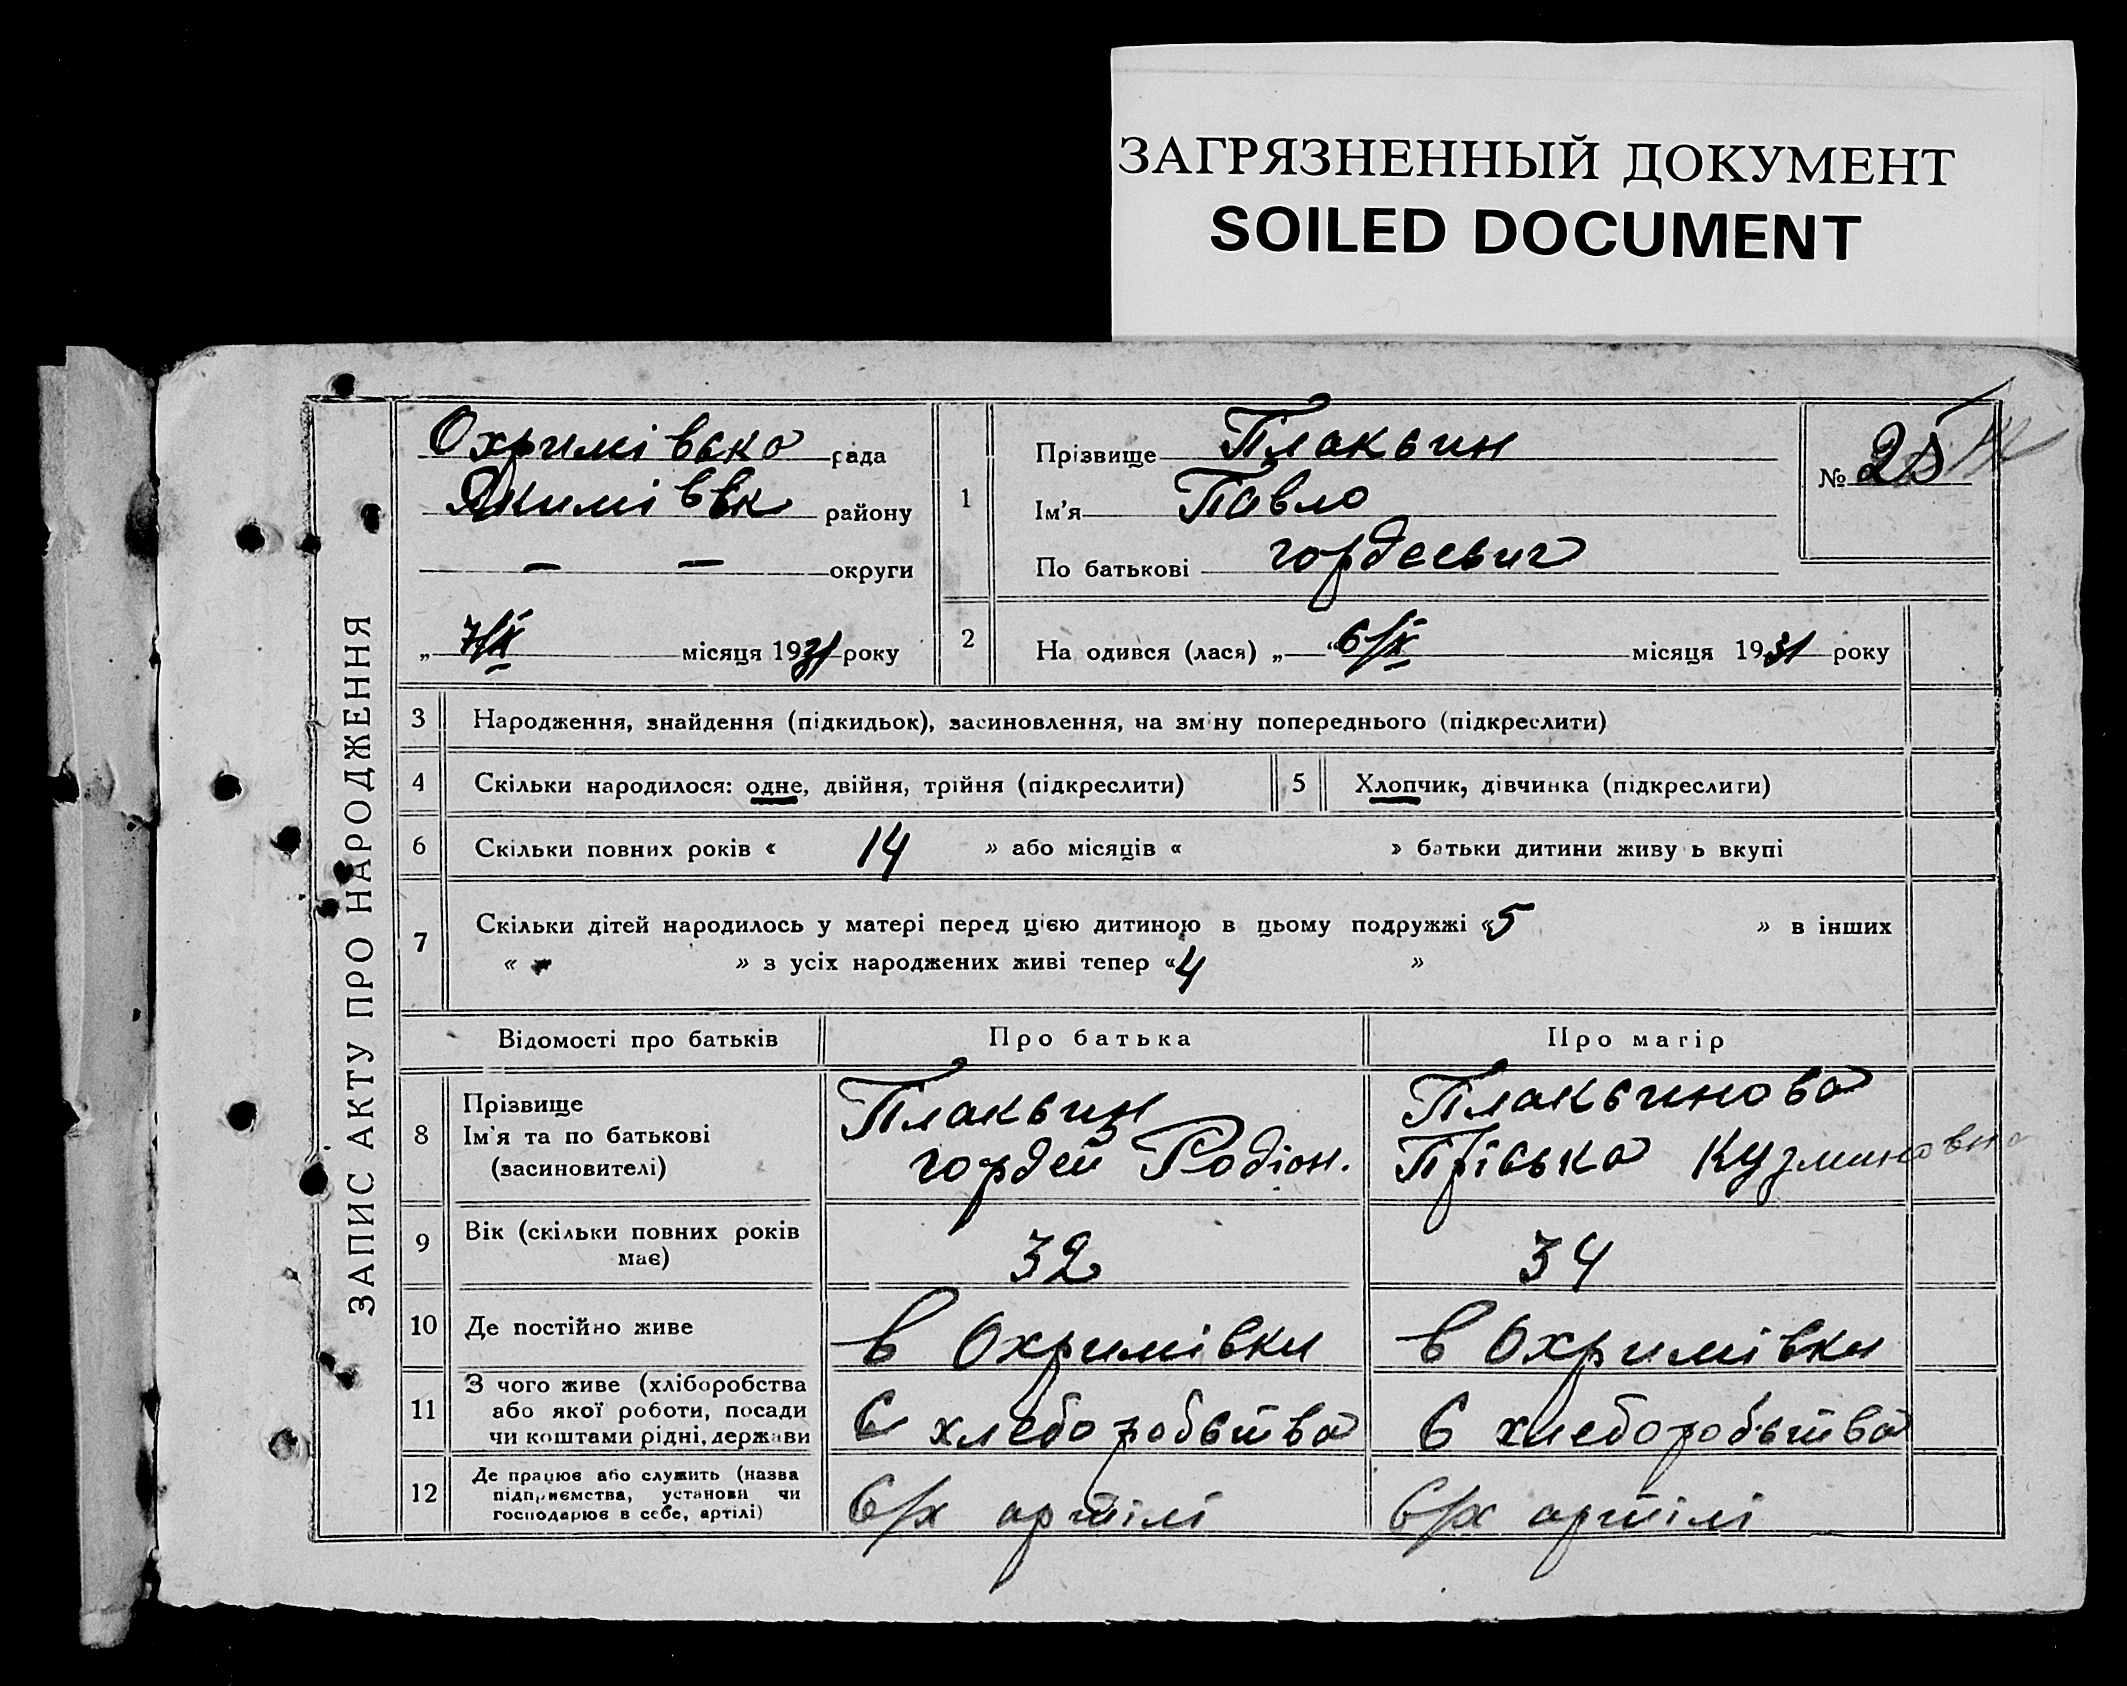 ЗАГРЯЗНЕННЫЙ ДОКУМЕНТ
SOILED DOCUMENT
ЗАПИС АКТУ ПРО НАРОДЖЕННЯ
Охримівсько рада
Якимівськ району
— — округи
„ 7/IX місяця 1931 року
1
Прізвище Плаксин
Ім'я Павло
По батькові гордеевич
№ 25
2 На одився (лася) „ “6/IX місяця 1931 року
3 Народження, знайдення (підкидьок), засиновлення, на зміну попереднього (підкреслити)
4 Скільки народилося: одне, двійня, трійня (підкреслити) 5 Хлопчик, дівчинка (підкреслити)
6 Скільки повних років « 14 » або місяців « » батьки дитини живу ь вкупі
7 Скільки дітей народилось у матері перед цією дитиною в цьому подружжі «5 » в інших
« » з усіх народжених живі тепер «4 »
Відомості про батьків Про батька Про матір
8 Прізвище
Ім'я та по батькові
(засиновителі)
Плаксин
гордей Родіон.
Плаксинова
Пріська Кузминовна
9 Вік (скільки повних років
має) 32 34
10 Де постійно живе в Охримівки в Охримівки
11 З чого живе (хліборобства
або якої роботи, посади
чи коштами рідні, держави
с хлеборобства с хлеборобства
12 Де працює або служить (назва
підприємства, установи чи
господарює в себе, артілі)
с/х артілі с/х артілі